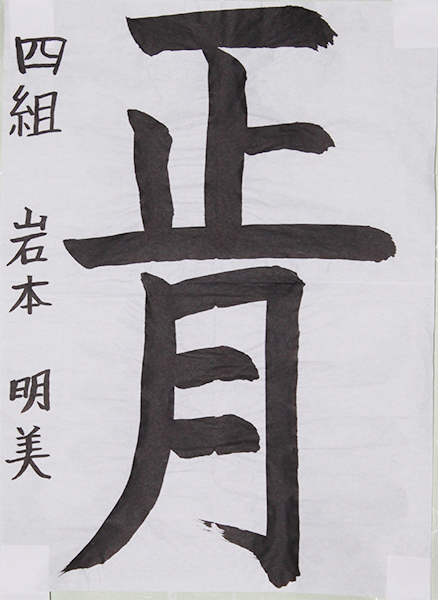 正月
四組 岩本 明美